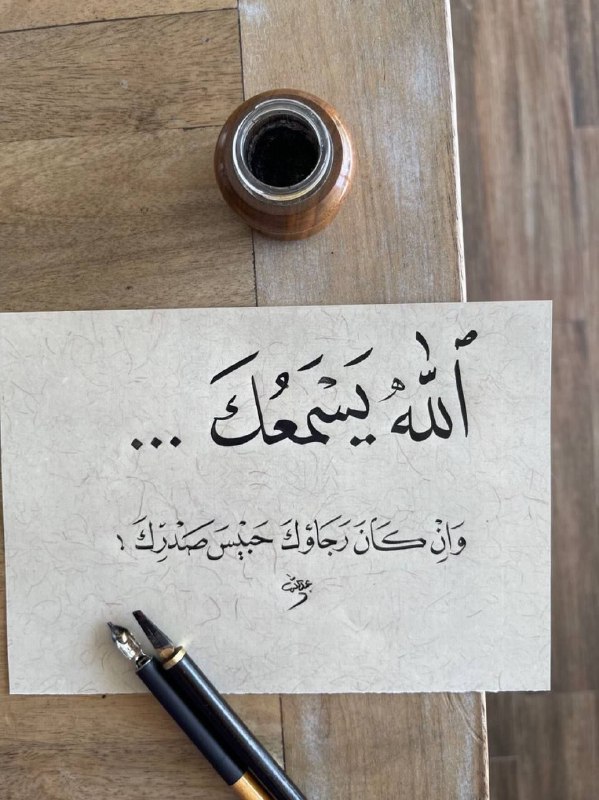 ٱللّٰهُ يَسْمَعُكَ ...
وَاِنْ كَانَ رَجَاؤكَ حَبْيسَ صَدْرِكَ ؛